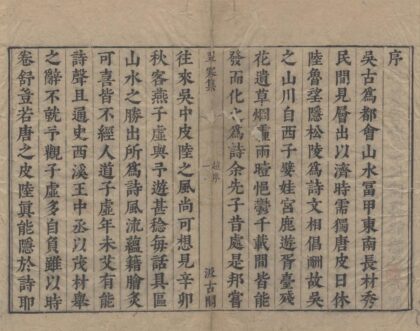 序
吳古爲都會山水冨甲東南長材秀
民間見層出以濟時需獨唐皮日休
陸魯望隱松陵爲詩文相倡酬故吳
之山川自西子嬖娃宮鹿遊胥臺殘
花遺草烟雨悒鬱千載間皆能
發而化爲詩余先子昔處是邦嘗
翠寒集
汲古閣
往來吳中皮陸之風尚可想見辛卯
秋客燕子虛與予遊甚稔每話具區
山水之勝出所爲詩風流蘊藉膾炙
可喜皆不經人道子虛年未艾有能
詩聲且通史西溪王中丞以茂材舉
之辭不就予觀子虛多自負雖以時
卷舒豈若唐之皮陸眞能隱於詩耶